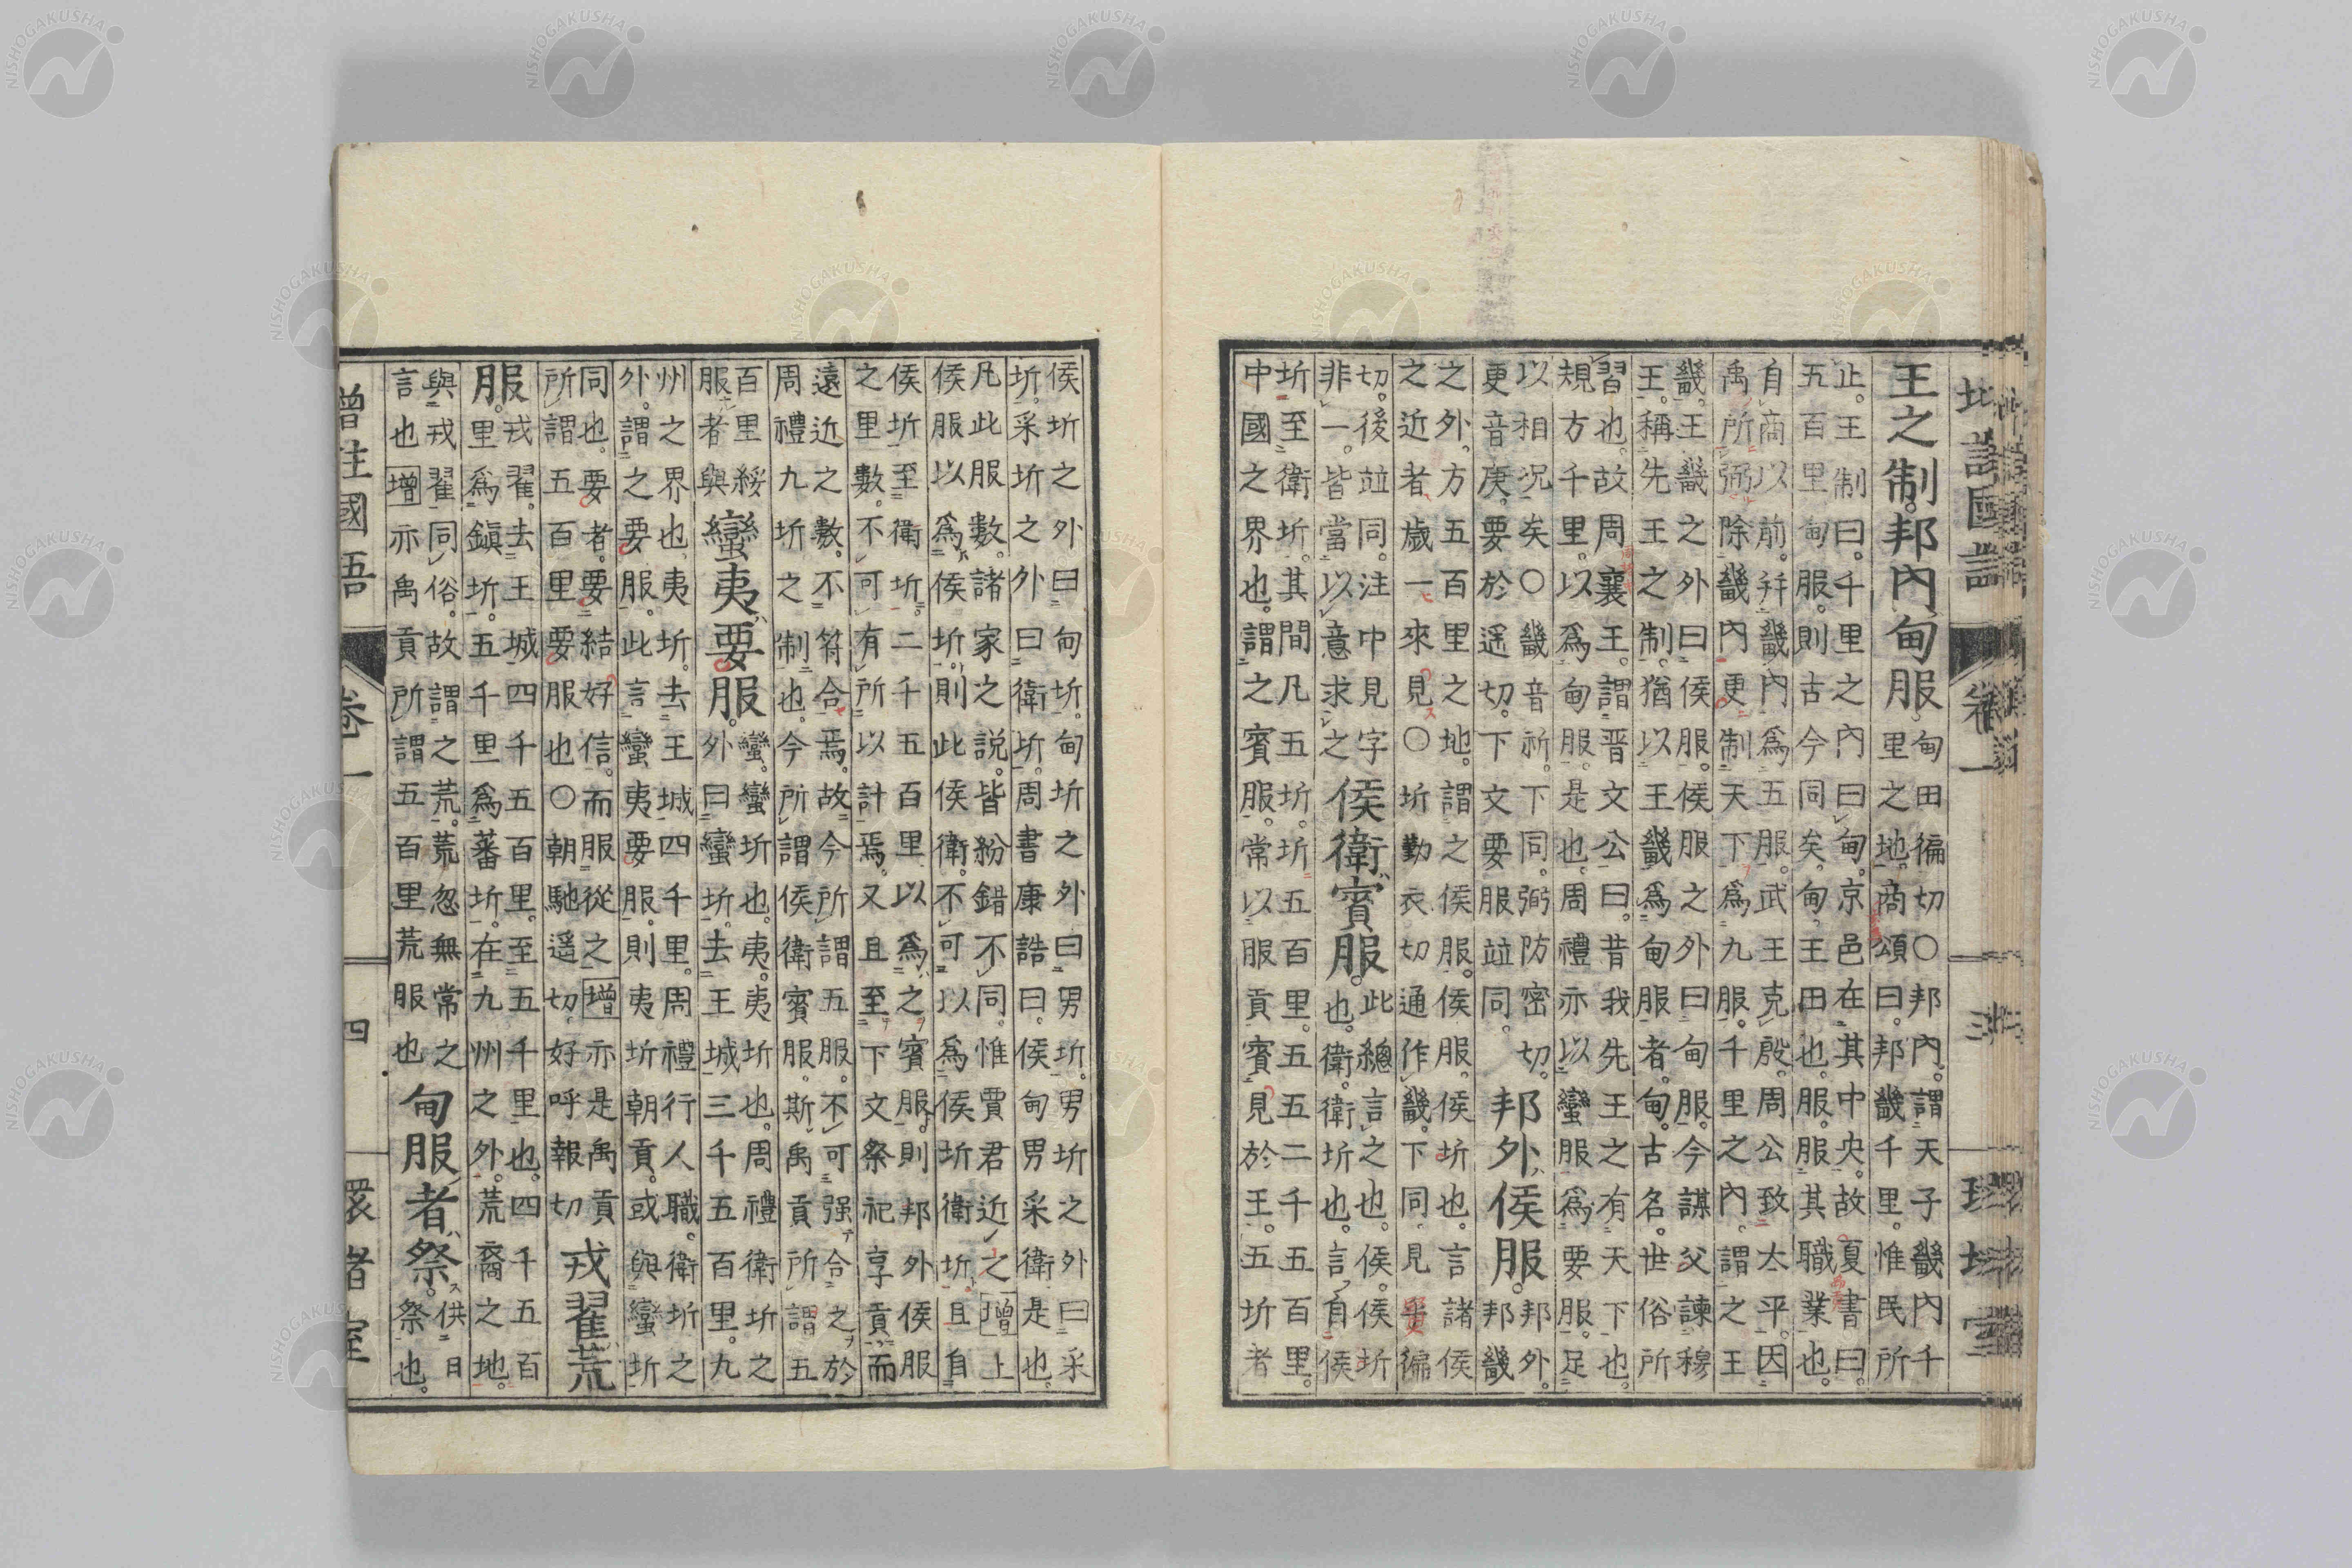 王之制。邦內甸服。
甸田徧切〇邦內。謂天子畿內千
里之地。商頌曰。邦畿千里。惟民所
止。王制曰。千里之內曰甸。京邑在其中央。故夏書曰。
五百里甸服。則古今同矣。甸。王田也。服。服其職業也。
自商以前。幷畿內爲五服。武王克殷。周公致太平。因
禹所弼。除畿內更制天下爲九服。千里之內。謂之王
畿。王畿之外曰侯服。侯服之外曰甸服。今謀父諫穆
王。稱先王之制。猶以王畿爲甸服者。甸。古名。世俗所
習也。故周襄王。謂晋文公曰。昔我先王之有天下也。
規方千里。以爲甸服。是也。周禮亦以蠻服爲要服。足
以相況矣〇畿音祈。下同。弼防密切。
更音庚。要於遥切。下文要服竝同。
邦外侯服。
邦外。
邦畿
之外。方五百里之地。謂之侯服。侯服。侯圻也。言諸侯
之近者歲一來見〇圻勤衣切。通作畿。下同。見徧
切。後竝同。注中見字
非一。皆當以意求之
侯衛賓服。
此總言之也。侯。侯圻
也。衛。衛圻也。言自侯
圻至衛圻。其間凡五圻。圻五百里。五五二千五百里。
中國之界也。謂之賓服。常以服貢賓見於王。五圻者
三
侯圻之外曰甸圻。甸圻之外曰男圻。男圻之外曰采
圻。采圻之外曰衛圻。周書康誥曰。侯甸男采衛是也。
凡此服數。諸家之說。皆紛錯不同。惟賈君近之增上
侯服以爲侯圻。則此侯衛。不可以爲侯圻衛圻。且自
侯圻至衛圻。二千五百里。以爲之賓服。則邦外侯服
之里數。不可有所以計焉。又且至下文祭祀享貢。而
遠近之數。不符合焉。故今所謂五服。不可强合之於
周禮九圻之制也。今所謂侯衛賓服。斯禹貢所謂五
百里綏
服者與
蠻夷要服。
蠻。蠻圻也。夷。夷圻也。周禮衛圻之
外曰蠻圻。去王城三千五百里。九
州之界也。夷圻。去王城四千里。周禮行人職。衛圻之
外。謂之要服。此言蠻夷要服。則夷圻朝貢。或與蠻圻
同也。要者。要結好信。而服從之增亦是禹貢
所謂五百里要服也〇朝馳遥切。好呼報切
戎翟荒
服。
戎翟。去王城四千五百里。至五千里也。四千五百
里爲鎭圻。五千里爲蕃圻。在九州之外。荒裔之地。
與戎翟同俗。故謂之荒。荒忽無常之
言也增亦禹貢所謂五百里荒服也
甸服者祭。
供日
祭也。
增注國語
卷一
四